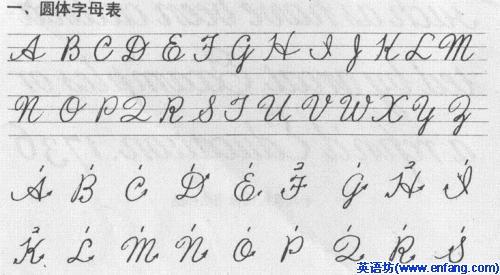 一、圆体字母表
A B C D E F G H I J K L M
N O P Q R S T U V W X Y Z
A B C D E F G H I
K L M N O P Q R S
英语坊(www.enfang.com)